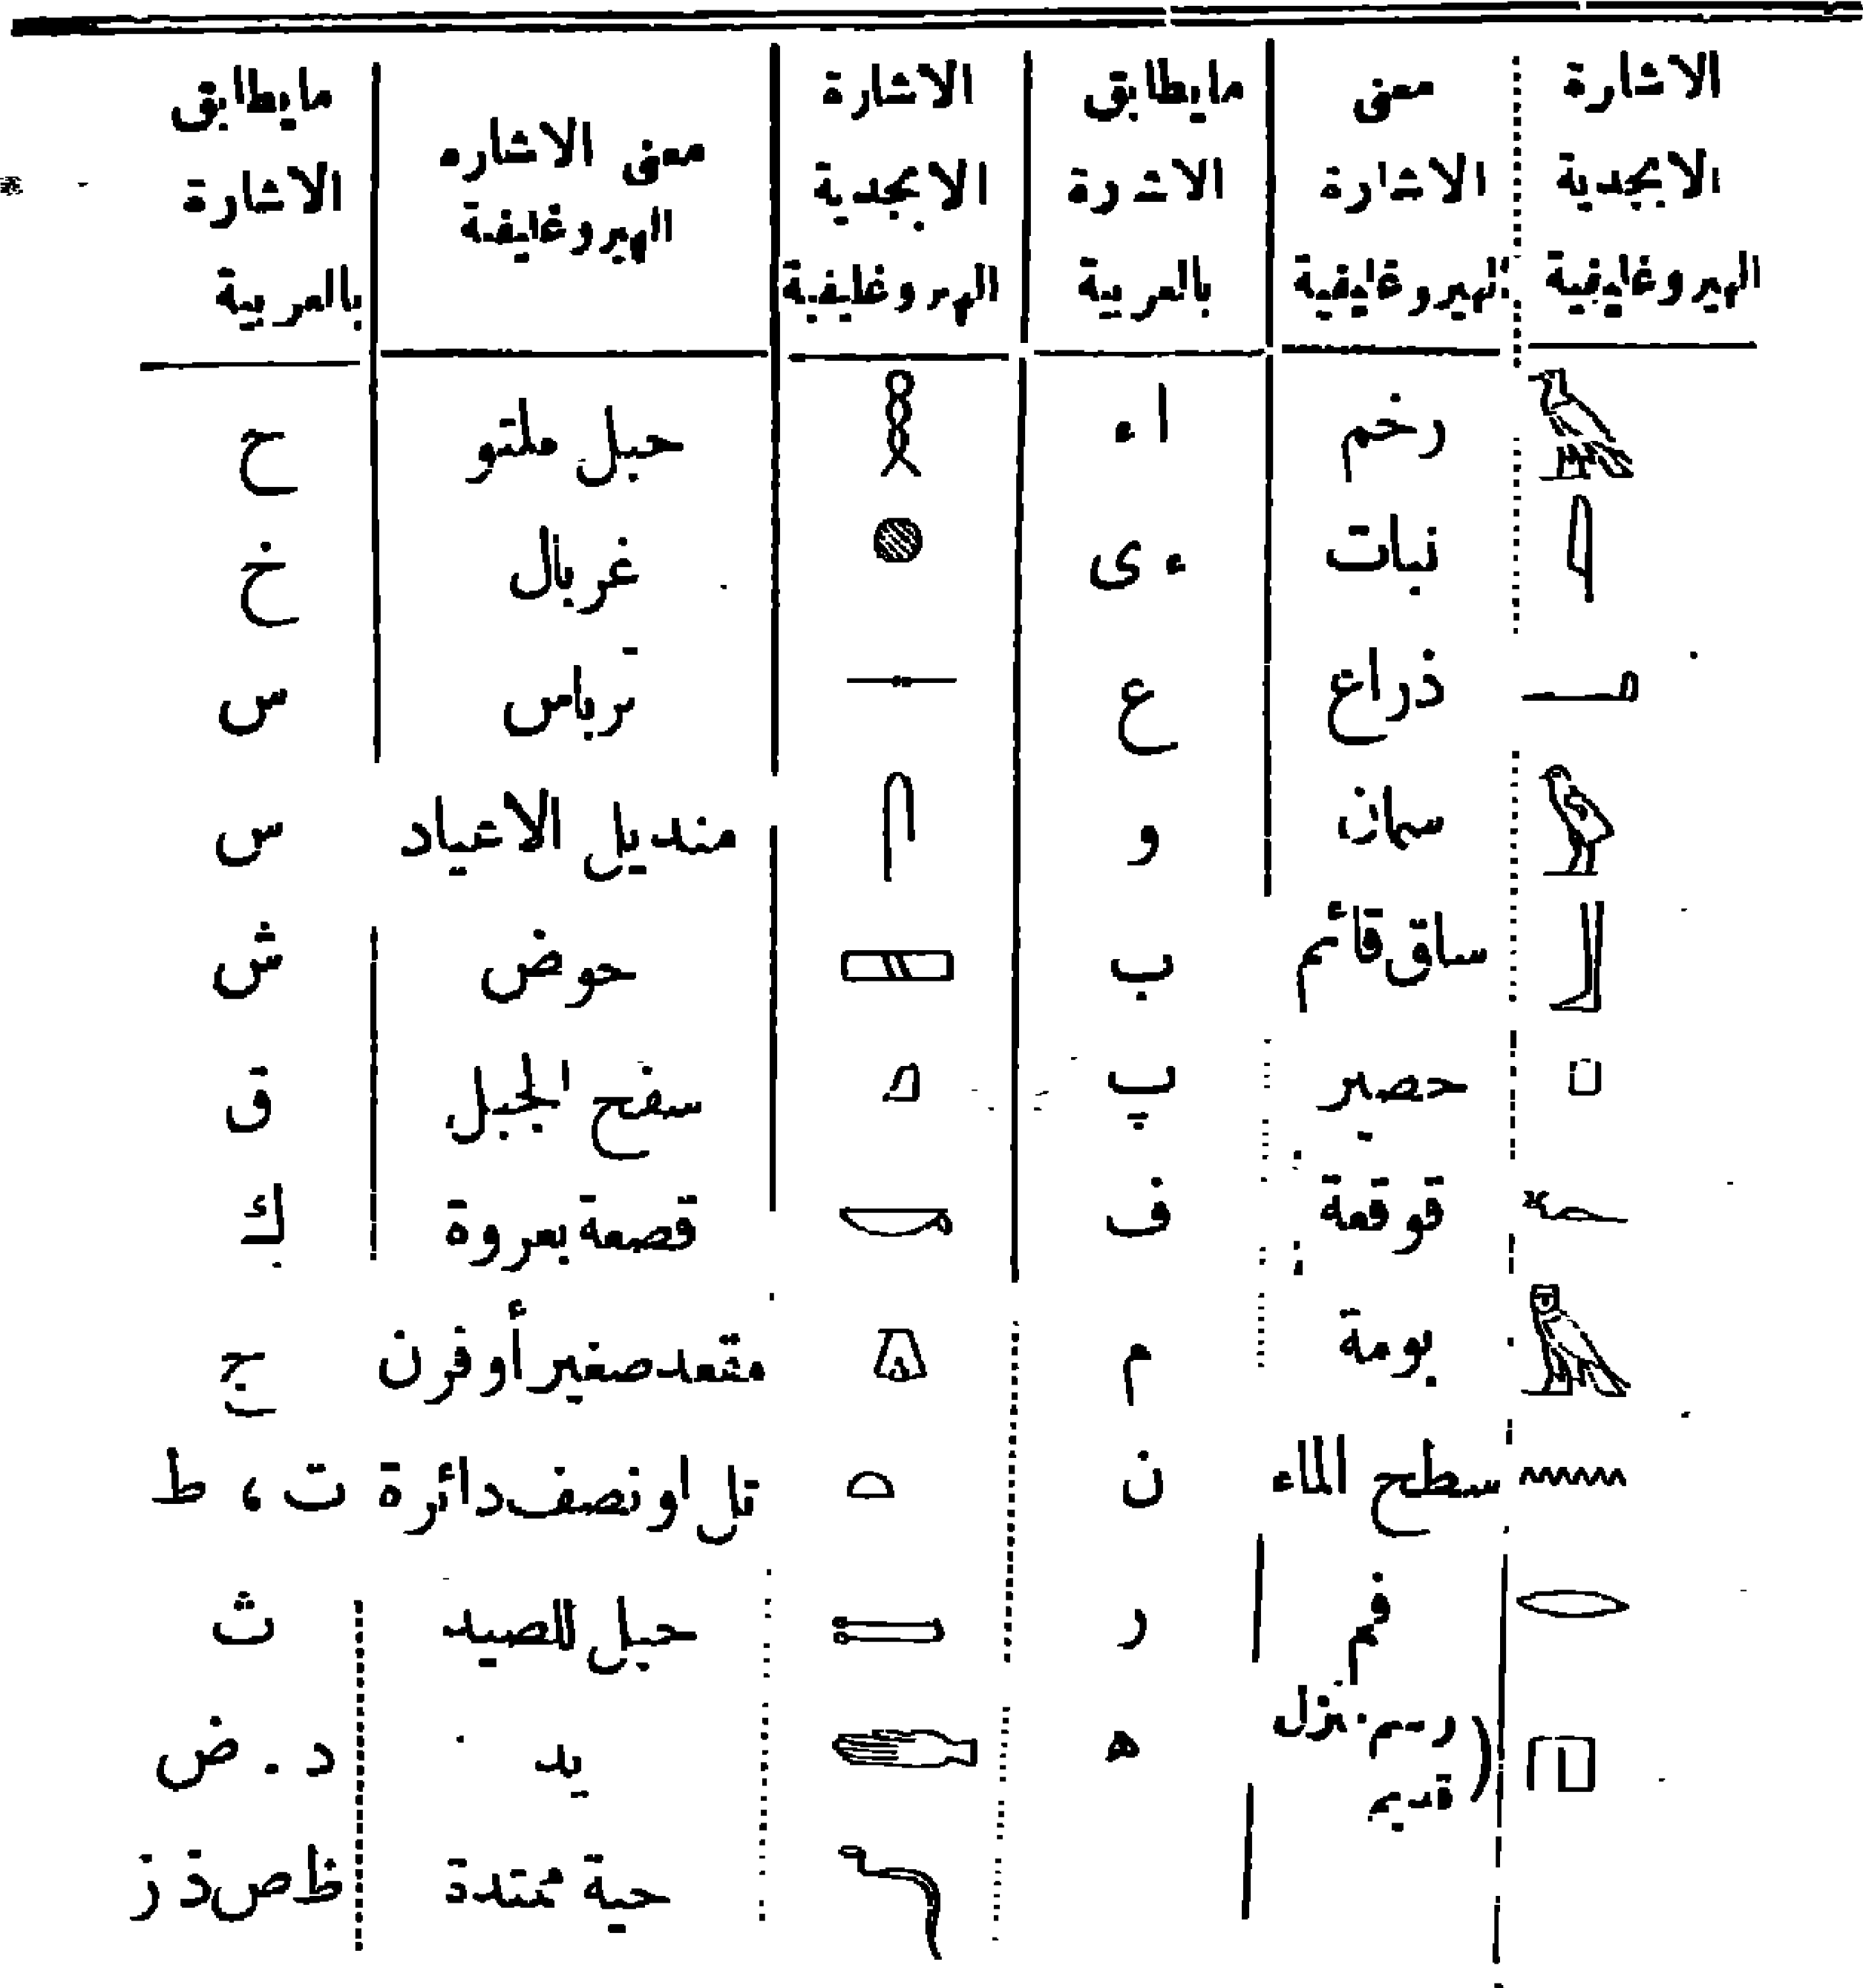 الاشارة الابجدية الهيروغليفية | معنى الاشارة الهيروغليفية | مايطابق الاشرة بالعربية | الاشارة الابجدية الهيروغليفية | معنى الاشاره الهيروغليفية | مايطابق الاشارة بالعربية
رخم | ا ء | حبل ملتو | ح
نبات | ء ى | غربال | خ
ذراع | ع | ترباس | س
سمان | و | منديل الاعياد | س
ساق قائم | ب | حوض | ش
حصير | پ | سفح الجبل | ق
قوقعة | ف | قصعة بعروة | ك
بومة | م | مقعد صغير أو فرن | ج
سطح الماء | ن | تل او نصف دائرة | ت ، ط
فم | ر | حبل للصيد | ث
( رسم منزل قديم | ه | يد | د . ض
حية ممتدة | ظ ص ذ ز